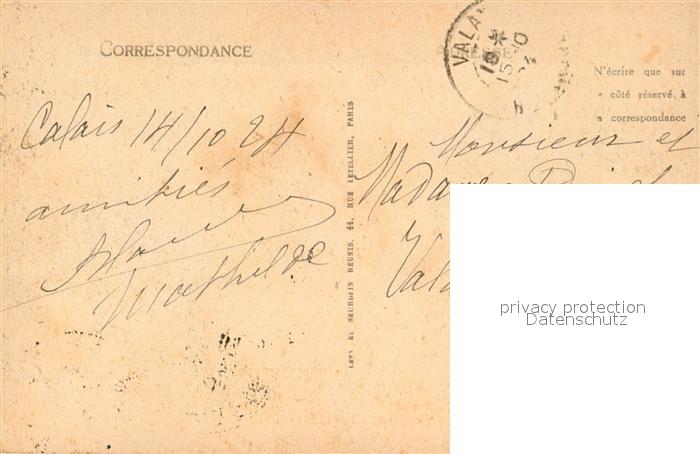 CORRESPONDANCE
N'écrire que sur
côté réservé à
a correspondance
Calais 14/10 24
amitiés
Mathilde
LEVY ET NEURDEIN REUNIS, 44, RUE LETELLIER, PARIS
VALA
15-10
Monsieur et
Madame
Vala
privacy protection
Datenschutz